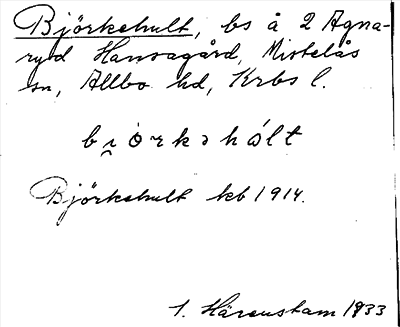 Björkehult, bs å 2 Agna-
ryd Hansagård, Mistelås
sn, Allbo hd, Krbs l.
bi̯órkɔhólt
Björkehult kb 1914.
1. Härenstam 1933